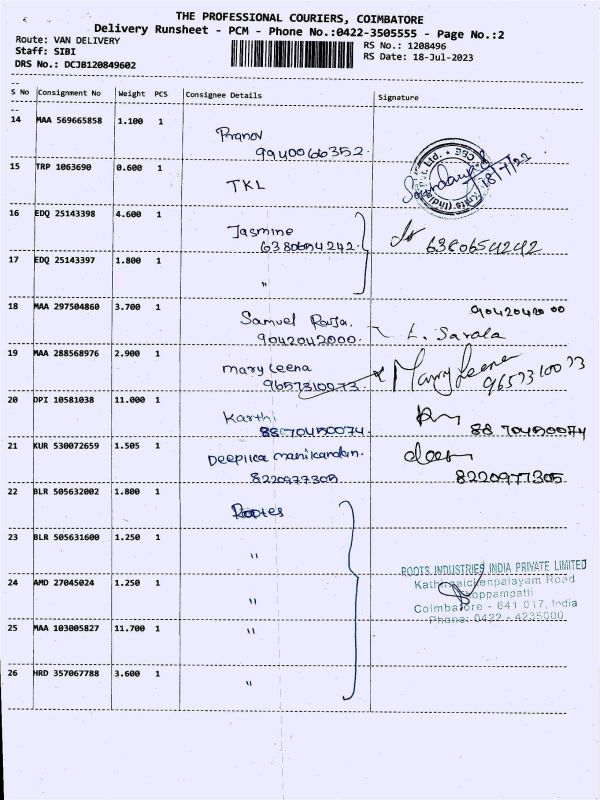 THE PROFESSIONAL COURIERS, COIMBATORE
Delivery Runsheet - PCM - Phone No.:0422-3505555 - Page No.:2
Route: VAN DELIVERY
RS No.: 1208496
Staff: SIBI
RS Date: 18-Jul-2023
DRS No.: DCJB120849602
S No Consignment No Weight PCS Consignee Details Signature
14 MAA 569665858 1.100 1
Pranov
9940066352.
15 TRP 1063690 0.600 1
TKL
18/7/22
16 EDQ 25143398 4.600 1
Jasmine
6380654242. 6380654242
17 EDQ 25143397 1.800 1
"
18 MAA 297504860 3.700 1
9042042000
Samuel Raja. L. Sarala
9042042000.
19 MAA 288568976 2.900 1
mary Leena Mary Leena
9657310073. 9657310073
20 DPI 10581038 11.000 1
Karthi
8870450074. 88 70450074
21 KUR 530072659 1.505 1
Deepika manikandan.
8220977305 8220977305
22 BLR 505632002 1.800 1
Rootes
23 BLR 505631600 1.250 1
"
ROOTS INDUSTRIES INDIA PRIVATE LIMITED
24 AMD 27045024 1.250 1
Road
Thoppampatti
"
Coimbatore - 641 017, India
Phone: 0422 - 4235000
25 MAA 103005827 11.700 1
"
26 HRD 357067788 3.600 1
"